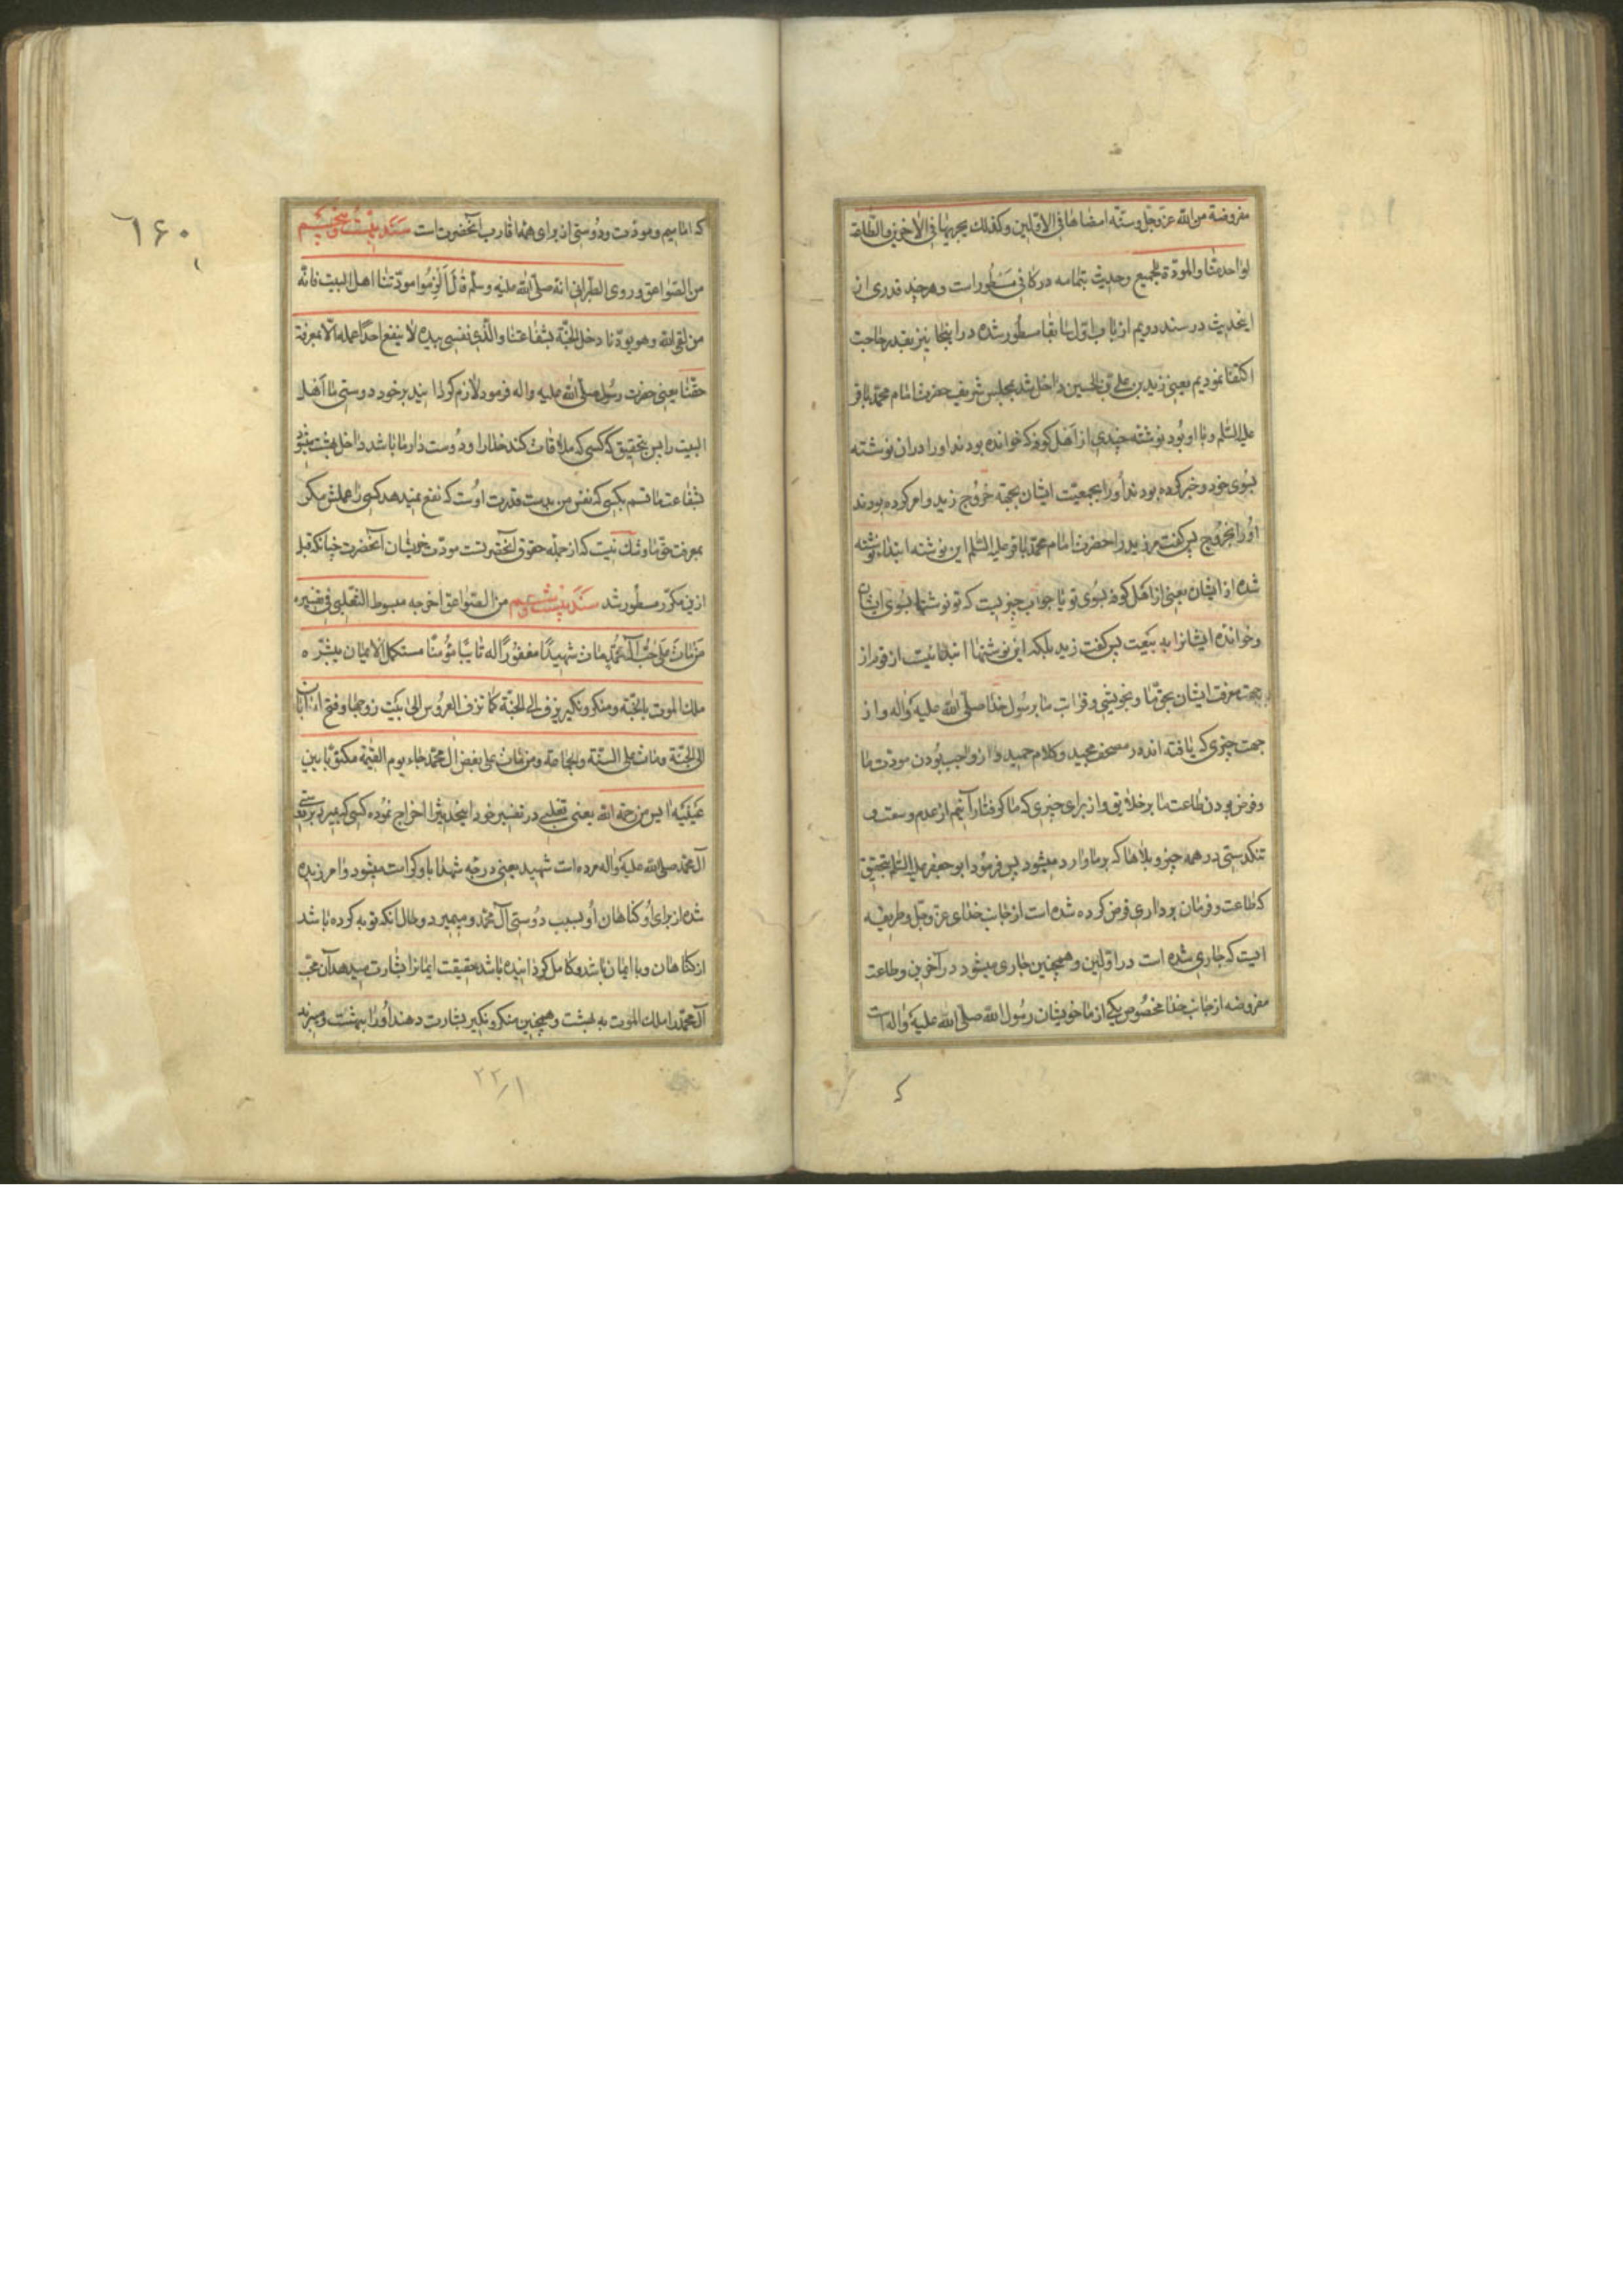 مفروضة من الله عزّ وجلّ وسنّه امضاها فی الاوّلین وکذلک یجریها فی الآخرین والطّاعة
لواحد منّا والمودّة للجمیع وحدیث بتمامه در کافی مسطور است وهر چند قدری از
اینحدیث در سند دویم از باب اوّل سابقا مسطور شده در اینجا نیز بقدر حاجت
اکتفا نمودیم یعنی زید بن علی بن الحسین داخل شد بمجلس شریف حضرت امام محمّد باقر
علیه السّلم وبا او بود نوشته چندی از اهل کوفه که خوانده بودند او را در ان نوشته
بسوی خود وخبر کرده بودند او را بجمعیّت ایشان بجهة خروج زید وامر کرده بودند
او را بخروج پس کفت مر زید را حضرت امام محمّد باقر علیه السّلم این نوشته ابتداء نوشته
شده از ایشان یعنی از اهل کوفه بسوی تو یا جواب چیزیست که تو نوشتهٔ بسوی ایشان
وخوانده ایشانرا به بیعت پس کفت زید بلکه این نوشتها ابتدائیست از قوم از
جهت معرفت ایشان بحقّ ما وبخویشی وقرابت ما برسول خدا صلّی الله علیه واله واز
جهت چیزی که یافته اند در مصحف مجید وکلام حمید واز واجب بودن مودّت ما
وفرض بودن طاعت ما بر خلایق واز برای چیزی که ما کرفتار آنیم از عدم وسعت و
تنکدستی در همه چیز وبلاها که بر ما وارد میشود پس فرمود ابو جعفر علیه السّلم بتحقیق
که طاعت وفرمان برداری فرض کرده شده است از جانب خدای عزّ وجلّ وطریقه
ایست که جاری شده است در اوّلین وهمچنین جاری میشود در آخرین وطاعت
مفروضه از جانب خدا مخصوص یکی از ما خویشان رسول الله صلّی الله علیه واله است
۱۶۰
که امامیم ومودّت ودوستی از برای همهٔ اقارب آنحضرت است سند بیست وپنجم
من الصّواعق وروی الطّبرانی انه صلّی الله علیه وسلّم قال الزموا مودّتنا اهل البیت فانّه
من لقی الله وهو یودّنا دخل الجنّة بشفاعتنا والّذی نفسی بیده لا ینفع احداً عمله الّا بمعرفة
حقّنا یعنی حضرت رسول صلّی الله علیه واله فرمود لازم کردانید بر خود دوستی ما اهل
البیت را پس بتحقیق که کسی که ملاقات کند خدا را ودوست دار ما باشد داخل بهشت میشود
بشفاعت ما قسم بکسی که نفس من بدست قدرت اوست که نفع نمیدهد کسی را عملش مکر
بمعرفت حقّ ما وشک نیست که از جمله حقوق آنحضرتست مودّت خویشان آنحضرت چنانکه قبل
ازین مکرّر مسطور شد سند بیست وششم من الصّواعق اخرجه مبسوط الثعلبی فی تفسیره
من مات علی حبّ آل محمّد مات شهیداً مغفوراً له تائبا مؤمنًا مستکمل الایمان یبشّره
ملک الموت بالجنّة ومنکر ونکیر یزف الی الجنّة کما تزف العروس الی بیت زوجها وفتح له بابان
الی الجنّة ومات علی السنّة والجماعة ومن مات علی بغض آل محمّد جاء یوم القیمة مکتوبًا بین
عینیه آیس من رحمة الله یعنی ثعلبی در تفسیر خود اینحدیثرا اخراج نموده کسی که بمیرد بر دوستی
آل محمّد صلّی الله علیه واله مرده است شهید یعنی درجه شهدا باو کرامت میشود وامرزیده
شده از برای او کناهان او بسبب دوستی آل محمّد ومیمیرد وحال انکه توبه کرده باشد
از کناهان وبا ایمان باشد وکامل کردانیده باشد حقیقت ایمانرا بشارت میدهد آن محبّ
آل محمّد را ملک الموت به بهشت وهمچنین منکر ونکیر بشارت دهند او را ببهشت ومیبرند
۲۲۱